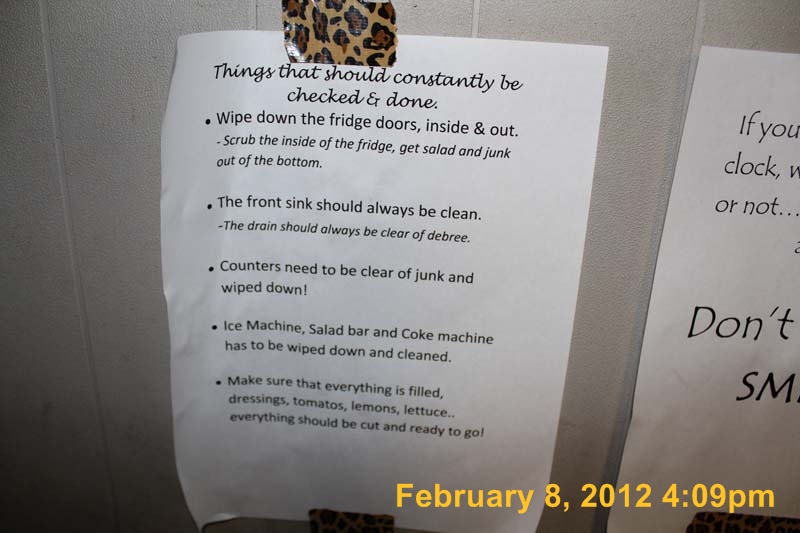 Things that should constantly be
checked & done.
• Wipe down the fridge doors, inside & out.
- Scrub the inside of the fridge, get salad and junk
out of the bottom.
• The front sink should always be clean.
-The drain should always be clear of debree.
• Counters need to be clear of junk and
wiped down!
• Ice Machine, Salad bar and Coke machine
has to be wiped down and cleaned.
• Make sure that everything is filled,
dressings, tomatos, lemons, lettuce..
everything should be cut and ready to go!
If you
clock, w
or not...
a
Don't
SM
February 8, 2012 4:09pm